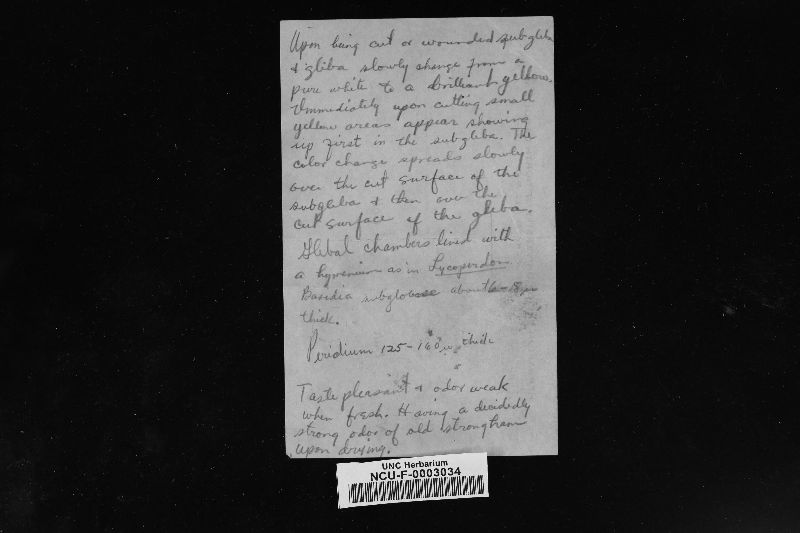 Upon being cut or wounded subgleba
& gleba slowly change from a
pure white to a brilliant yellow.
Immediately upon cutting small
yellow areas appear showing
up first in the subgleba. The
color change spreads slowly
over the cut surface of the
subgleba & then over the
cut surface of the gleba.
Glebal chambers lined with
a hymenium as in Lycoperdon.
Basidia subglobose about 6-8µ
thick.
Peridium 125-160µ thick
Taste pleasant & odor weak
when fresh. Having a decidedly
strong odor of old strong ham
upon drying.
UNC Herbarium
NCU-F-0003034